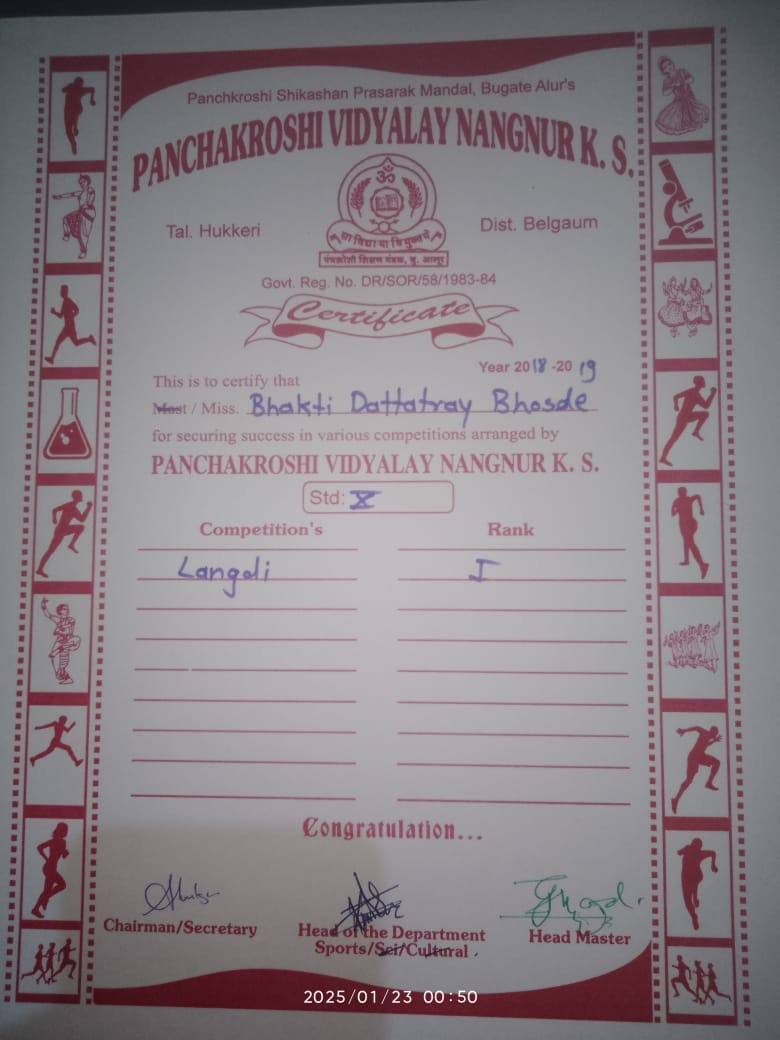 Panchkroshi Shikashan Prasarak Mandal, Bugate Alur's
PANCHAKROSHI VIDYALAY NANGNUR K. S.
ॐ
Tal. Hukkeri
Dist. Belgaum
सा विद्या या विमुक्तये
पंचक्रोशी शिक्षण मंडळ, बु. आलूर
Govt. Reg. No. DR/SOR/58/1983-84
Certificate
Year 2018 -2019
This is to certify that
Mast / Miss. Bhakti Dattatray Bhosde
for securing success in various competitions arranged by
PANCHAKROSHI VIDYALAY NANGNUR K. S.
Std: X
Competition's Rank
Langdi I
Congratulation...
Chairman/Secretary
Head of the Department
Sports/Sci/Cultural .
Head Master
2025/01/23 00:50